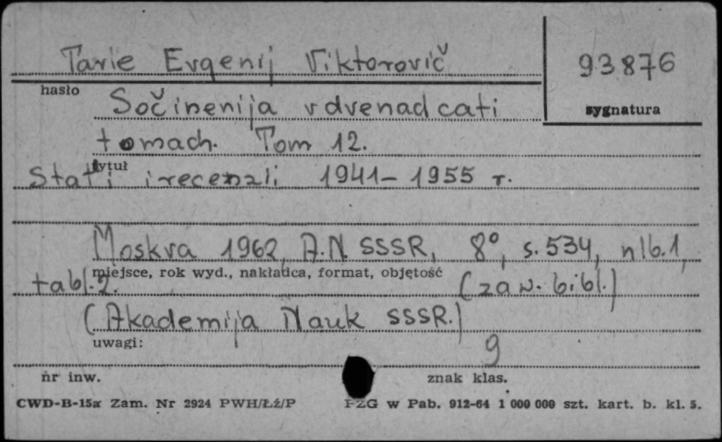 Tarle Evgenij Viktorovič
93876
hasło
sygnatura
Sočinenija v dvenadcati
tomach. Tom 12.
tytuł
Stat'i i recenzii 1941-1955 r.
Moskva 1962, A.N. SSSR, 8°, s.534, nlb.1,
miejsce, rok wyd., nakładca, format, objętość
tabl.2. (zaw. bibl.)
(Akademija Nauk SSSR.)
uwagi:
9
nr inw.
znak klas.
CWD-B-15a Zam. Nr 2924 PWH/Łź/P PZG w Pab. 912-64 1 000 000 szt. kart. b. kl. 5.